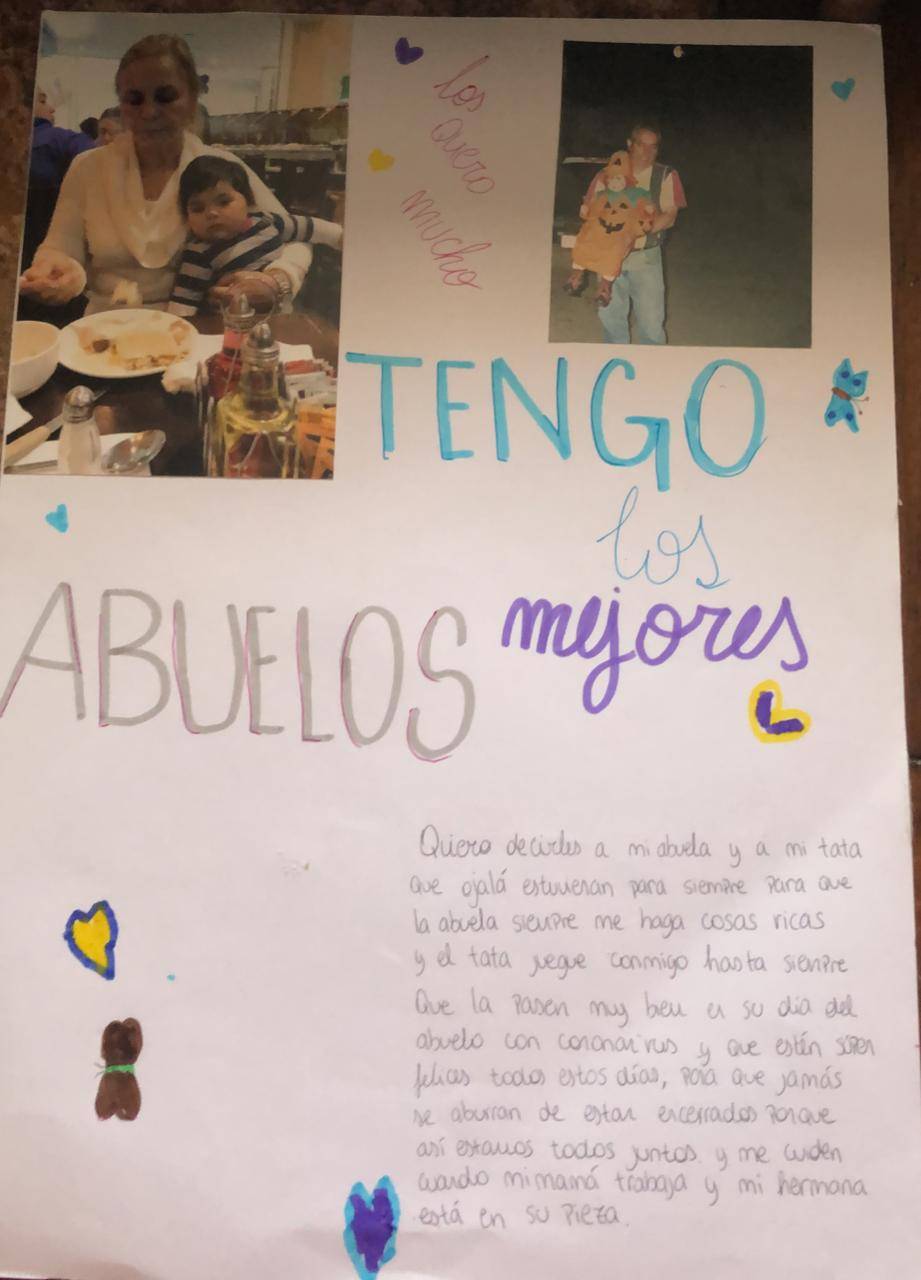 los
quero
mucho
TENGO
los
mejores
ABUELOS
Quiero decirles a mi abuela y a mi tata
que ojalá estuvieran para siempre para que
la abuela siempre me haga cosas ricas
y el tata juegue conmigo hasta siempre
Que la pasen muy bien en su día del
abuelo con coronavirus y que estén súper
felices todos estos días, para que jamás
se aburran de estar encerrados porque
así estamos todos juntos y me cuiden
cuando mi mamá trabaja y mi hermana
está en su pieza.